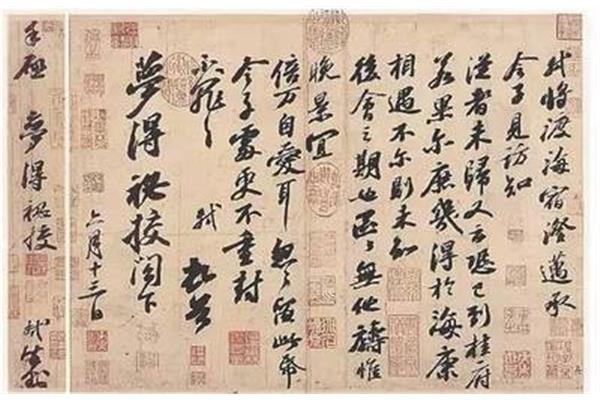 軾將渡海宿澄邁承
令子見訪知
從者未歸又云恐已到桂府
若果尔庶幾得於海康
相遇不尔則未知
後會之期也區〻無他禱惟
晚景宜
倍万自愛耳怱〻留此帋
令子處更不重封
不罪〻
軾 頓首
夢得祕校閣下
六月十三日
手啓 夢得祕校 軾封